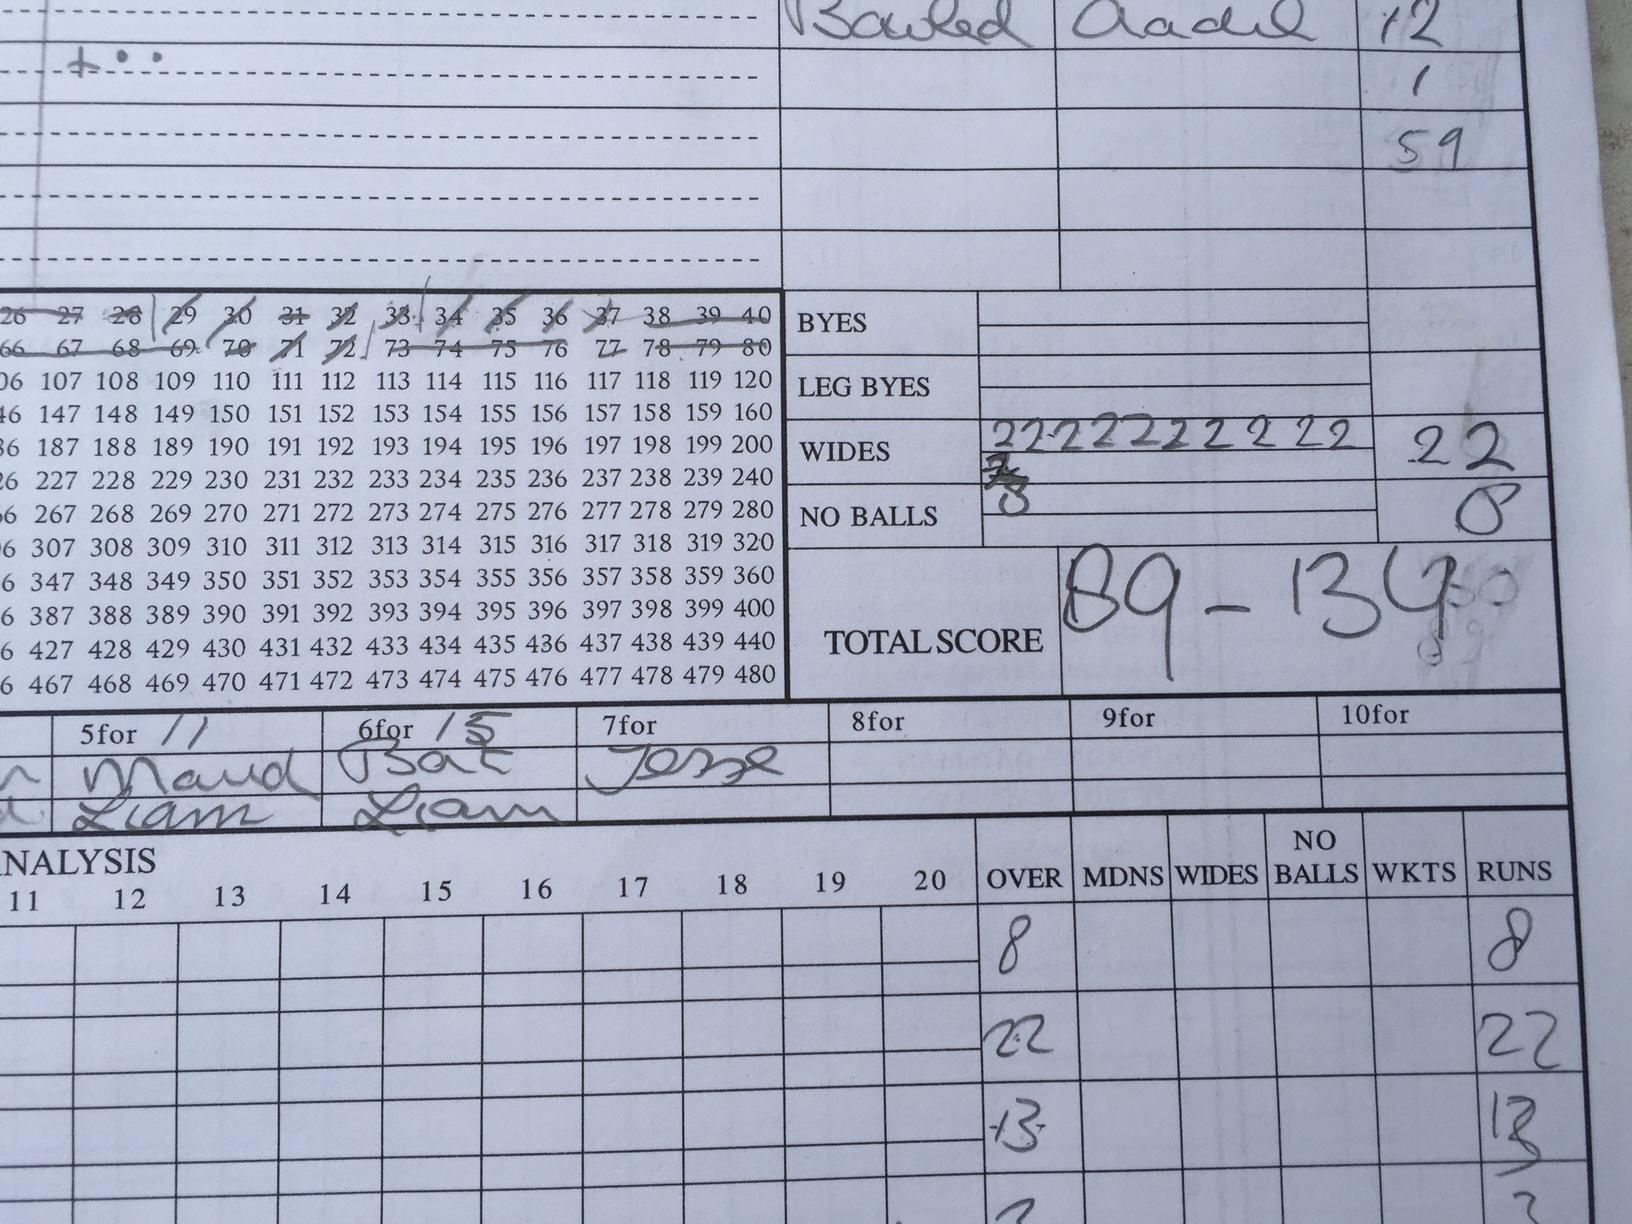 Bowled Aadil 12
+ • • 1
59
26 27 28 29 30 31 32 33 34 35 36 37 38 39 40 BYES
66 67 68 69 70 71 72 73 74 75 76 77 78 79 80
06 107 108 109 110 111 112 113 114 115 116 117 118 119 120 LEG BYES
46 147 148 149 150 151 152 153 154 155 156 157 158 159 160
86 187 188 189 190 191 192 193 194 195 196 197 198 199 200 WIDES 2 2 2 2 2 2 2 2 2 2 2 22
26 227 228 229 230 231 232 233 234 235 236 237 238 239 240
66 267 268 269 270 271 272 273 274 275 276 277 278 279 280 NO BALLS 8 8
06 307 308 309 310 311 312 313 314 315 316 317 318 319 320
6 347 348 349 350 351 352 353 354 355 356 357 358 359 360
6 387 388 389 390 391 392 393 394 395 396 397 398 399 400
6 427 428 429 430 431 432 433 434 435 436 437 438 439 440 TOTAL SCORE 89 - 134
6 467 468 469 470 471 472 473 474 475 476 477 478 479 480
5for 11 6for 15 7for 8for 9for 10for
Maud Bat Jesse
Liam Liam
NALYSIS
11 12 13 14 15 16 17 18 19 20 OVER MDNS WIDES NO BALLS WKTS RUNS
8 8
22 22
13 13